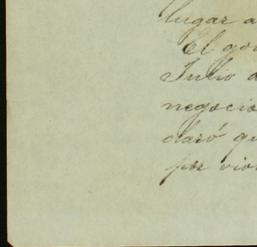 lugar a
El go
Julio d
negocio
claró qu
por vio